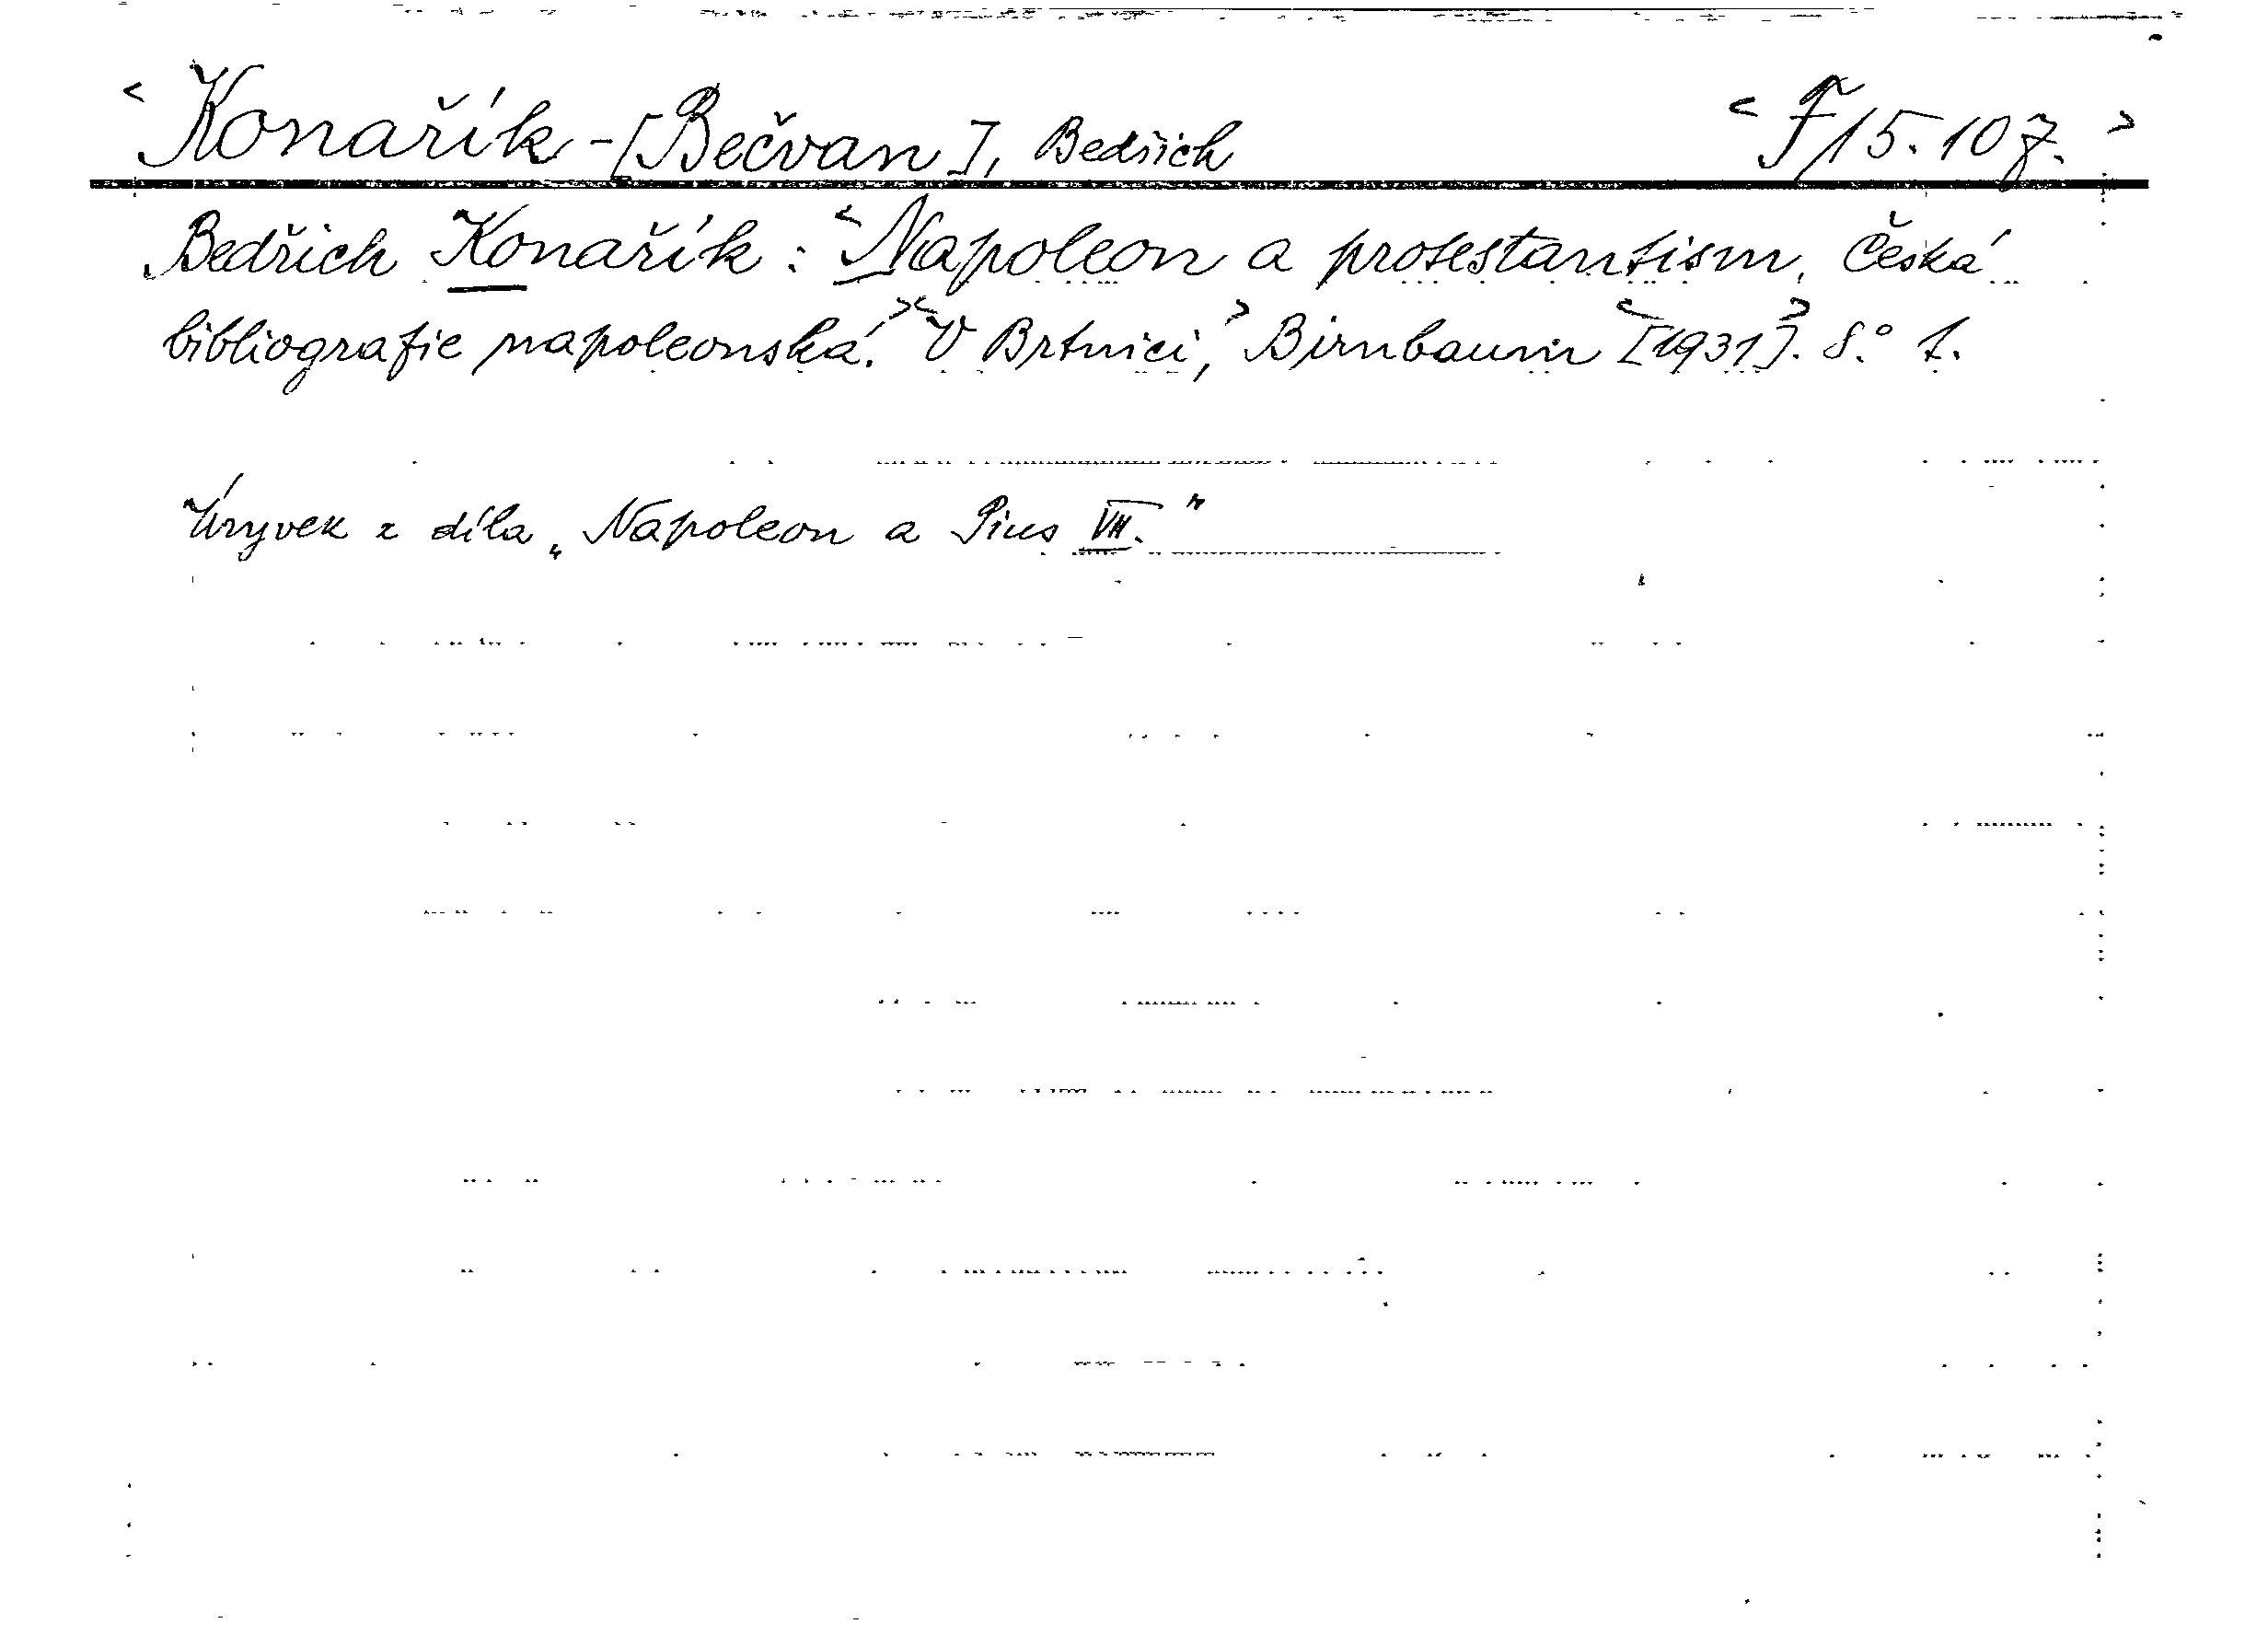 < Konařík-[Bečvan], Bedřich < F 15.107. >
Bedřich Konařík: <Napoleon a protestantism. Česká
bibliografie napoleonská.> <V Brtnici,> Birnbaum <[1931]>. 8.° 1.
Úryvek z díla „Napoleon a Pius VII."